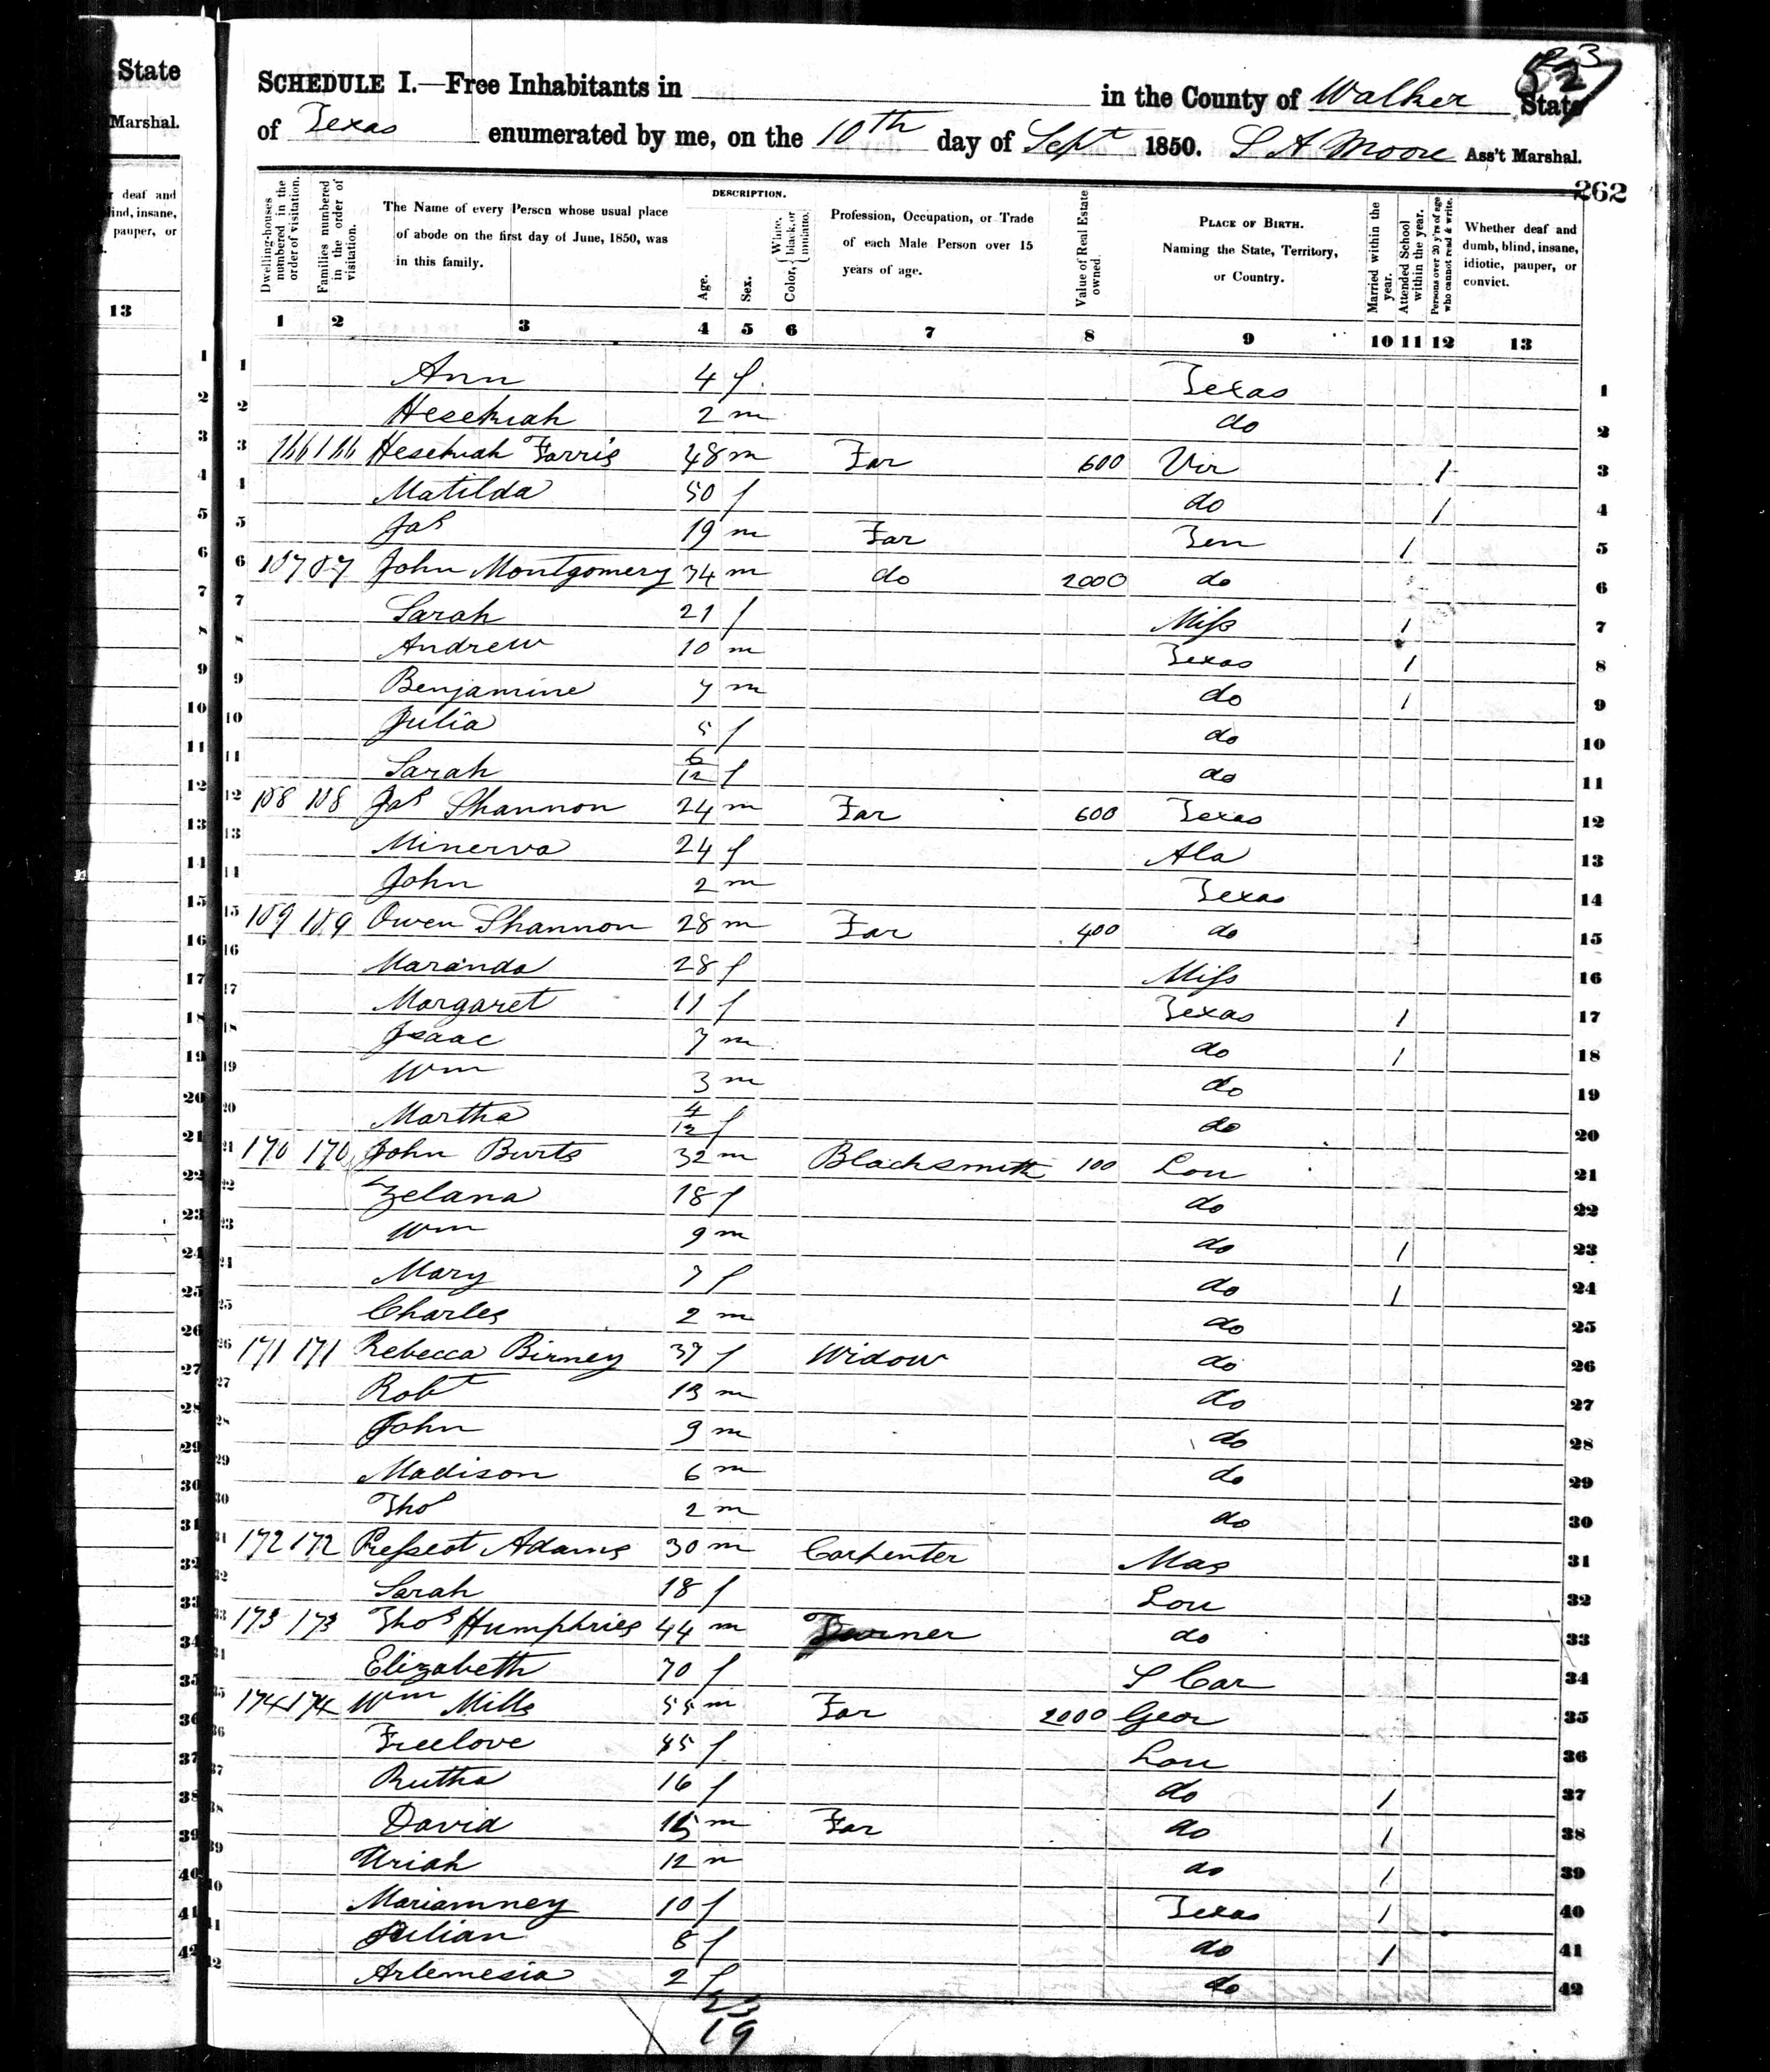 State
Marshal.
deaf and
lind, insane,
pauper, or
13
523
SCHEDULE I.—Free Inhabitants in in the County of Walker State
of Texas enumerated by me, on the 10th day of Sept 1850. S A Moore Ass't Marshal.
262
Dwelling-houses numbered in the order of visitation.
Families numbered in the order of visitation.
The Name of every Person whose usual place of abode on the first day of June, 1850, was in this family.
DESCRIPTION.
Age.
Sex.
Color, White, black, or mulatto.
Profession, Occupation, or Trade of each Male Person over 15 years of age.
Value of Real Estate owned.
PLACE OF BIRTH. Naming the State, Territory, or Country.
Married within the year.
Attended School within the year.
Persons over 20 y'rs of age who cannot read & write.
Whether deaf and dumb, blind, insane, idiotic, pauper, or convict.
1 2 3 4 5 6 7 8 9 10 11 12 13
1 Ann 4 f Texas 1
2 Hesekiah 2 m do 2
3 166 166 Hesekiah Farris 48 m Far 600 Vir 1 3
4 Matilda 50 f do 1 4
5 Jas 19 m Far Ten 1 5
6 167 67 John Montgomery 34 m do 2000 do 6
7 Sarah 21 f Miss 1 7
8 Andrew 10 m Texas 1 8
9 Benjamine 7 m do 1 9
10 Julia 5 f do 10
11 Sarah 6/12 f do 11
12 168 168 Jas Shannon 24 m Far 600 Texas 12
13 Minerva 24 f Ala 13
14 John 2 m Texas 14
15 169 169 Owen Shannon 28 m Far 400 do 15
16 Maranda 28 f Miss 16
17 Margaret 11 f Texas 1 17
18 Isaac 7 m do 1 18
19 Wm 3 m do 19
20 Martha 4/12 f do 20
21 170 170 John Burts 32 m Blacksmith 100 Lou 21
22 Zelana 18 f do 22
23 Wm 9 m do 1 23
24 Mary 7 f do 1 24
25 Charles 2 m do 25
26 171 171 Rebecca Birney 37 f Widow do 26
27 Robt 13 m do 27
28 John 9 m do 28
29 Madison 6 m do 29
30 Thos 2 m do 30
31 172 172 Presscot Adams 30 m Carpenter Mas 31
32 Sarah 18 f Lou 32
33 173 173 Thos Humphries 44 m do 33
34 Elizabeth 70 f S Car 34
35 174 174 Wm Mills 55 m Far 2000 Geor 35
36 Freelove 45 f Lou 36
37 Rutha 16 f do 1 37
38 David 15 m Far do 1 38
39 Uriah 12 m do 1 39
40 Mariamney 10 f Texas 1 40
41 Julian 8 f do 1 41
42 Artemesia 2 f do 42
23
19